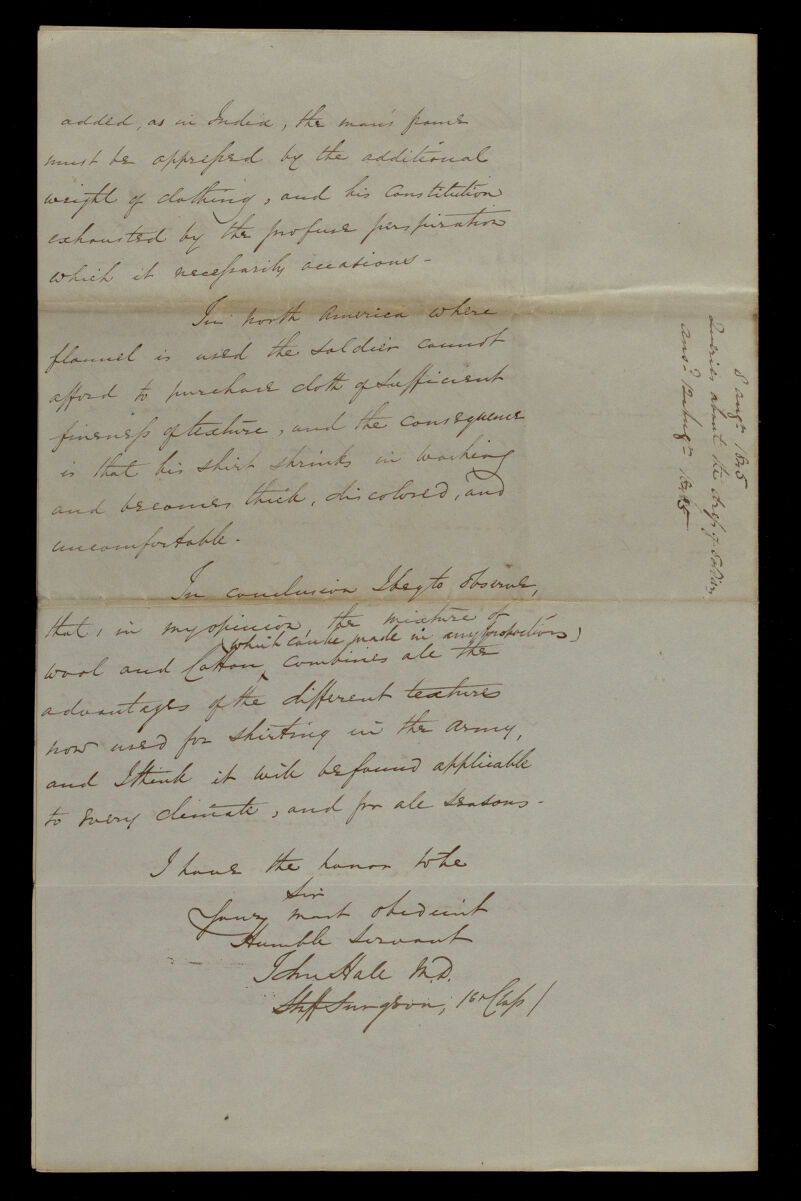 added, as in India, the man's frame
must be oppressed by the additional
weight of clothing, and his constitution
exhausted by the profuse perspiration
which it necessarily occasions -
In North America where
flannel is used the soldier cannot
afford to purchase cloth of sufficient
fineness of texture, and the consequence
is that his shirt shrinks in washing
and becomes thick, discolored, and
uncomfortable -
In conclusion I beg to observe,
that, in my opinion, the mixture of
(which can be made in any proportions)
wool and Cotton, combines all the
advantages of the different textures
now used for shirting in the army,
and I think it will be found applicable
to every climate, and for all seasons -
I have the honor to be
Sir
Your most obedient
Humble Servant
John Hall M.D.
Staff Surgeon, 1st Class /
8 Augt 1845
Queries about the dress of soldiers.
ansd 12 Augt 1845